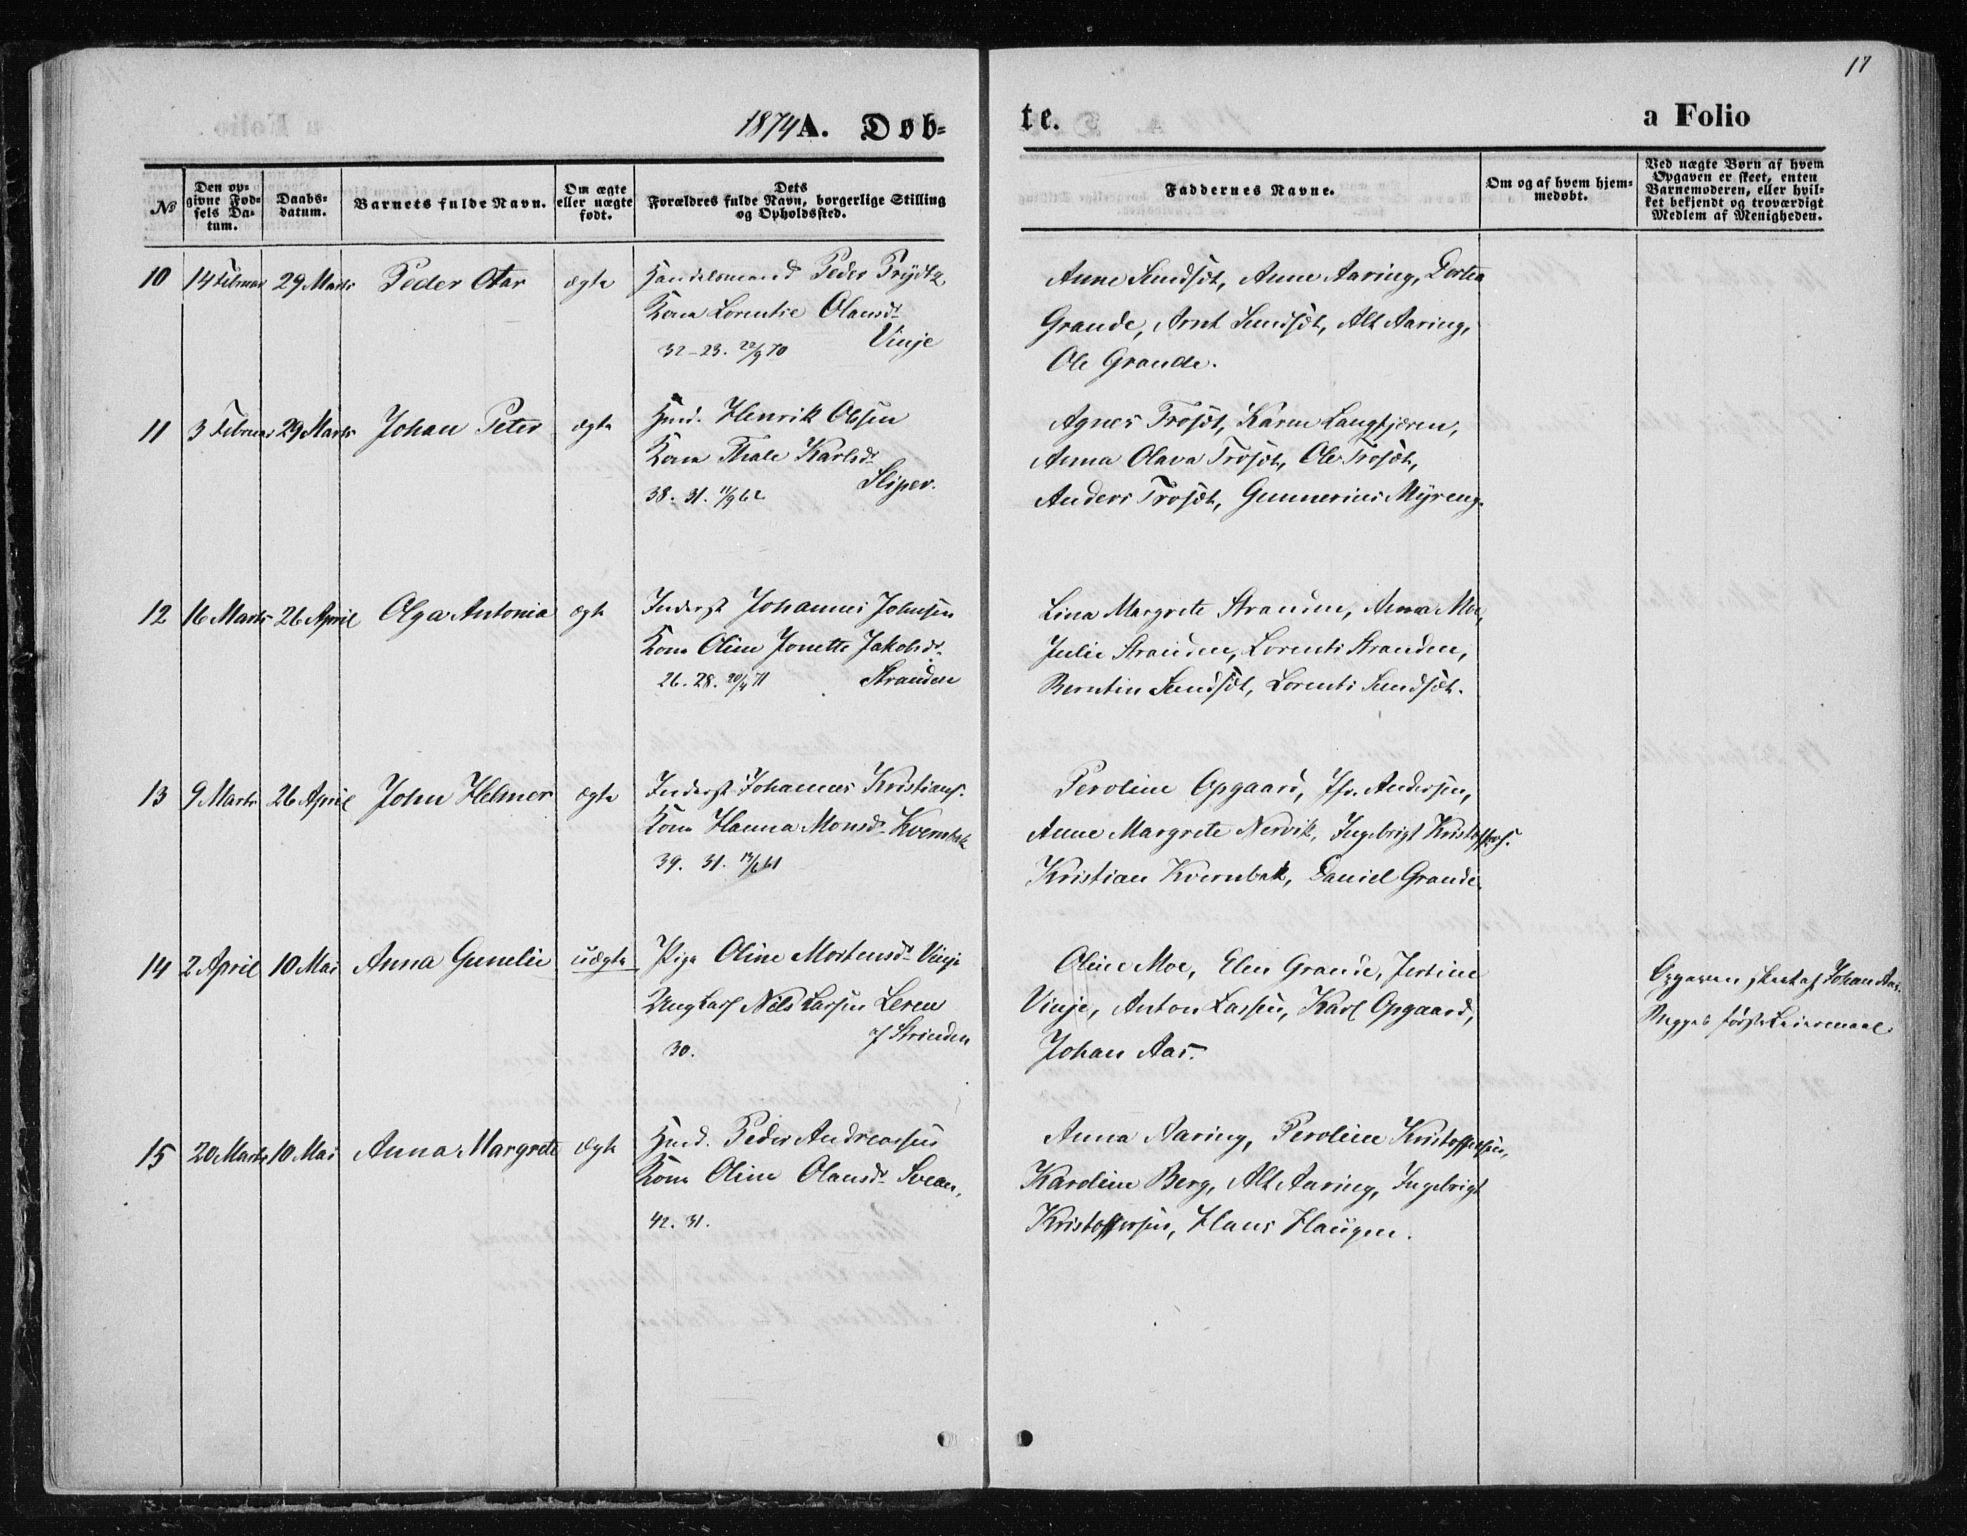 17
1874 A. Døb=
te.
a Folio
No
Den op=
givne Fød=
sels Da=
tum.
Daabs=
datum.
Barnets fulde Navn.
Om ægte
eller uægte
født.
Dets
Forældres fulde Navn, borgerlige Stilling
og Opholdssted.
Faddernes Navne.
Om og af hvem hjem=
medøbt.
Ved uægte Børn af hvem
Opgaven er skeet, enten
Barnemoderen, eller hvil=
ket bekjendt og troværdigt
Medlem af Menigheden.
10 14 Februar 29 Marts Peder Otar ægte Handelsmand Peder Prydtz
Kone Lorentse Olausdt
Vinje
32-23. 22/9 70
Anne Sundset, Anne Aaring, Dortea
Grande, Arnt Sundset, Alt Aaring,
Ole Grande.
11 3 Februar 29 Marts Johan Peter ægte Husd. Henrik Olsen
Kone Thale Karlsdt
Sliper.
38. 31. 11/9 62
Agnes Troset, Karen Langkjæren,
Anna Olava Troset, Ole Troset,
Anders Troset, Gunnerius Myreng.
12 16 Marts 26 April Olga Antonia ægte Inderst Johannes Johnsen
Kone Oline Jonette Jakobsdt.
26. 28. 20/4 71 Stranden
Lina Margrete Stranden, Anna Moe,
Julie Stranden, Lorents Stranden,
Berntin Sundset, Lorents Sundset.
13 9 Marts 26 April John Helmer ægte Inderst Johannes Kristians.
Kone Hanna Monsdt Kvernbæk
39. 31. 61
Peroline Opgaard, Jfr. Andersen,
Anne Margrete Nervik, Ingebrigt Kristoffers.
Kristian Kvernbæk, Daniel Grande.
14 2 April 10 Mai Anna Gunelie uægte Pige Oline Mortensdt Vinje
Ungkarl Nils Larsen Leren
af Strinden
30.
Oline Moe, Elen Grande, Jertine
Vinje, Anton Lassen, Karl Opgaard,
Johan Aas.
Opgaven skeet af Johan Aas.
Begges første Leiermaal.
15 20 Marts 10 Mai Anna Margrete ægte Husd. Peder Andreassen
Kone Oline Olausdt Svean,
42. 31.
Anna Aaring, Peroline Kristoffersen,
Karoline Berg, Alt Aaring, Ingebrigt
Kristoffersen, Hans Haugen.